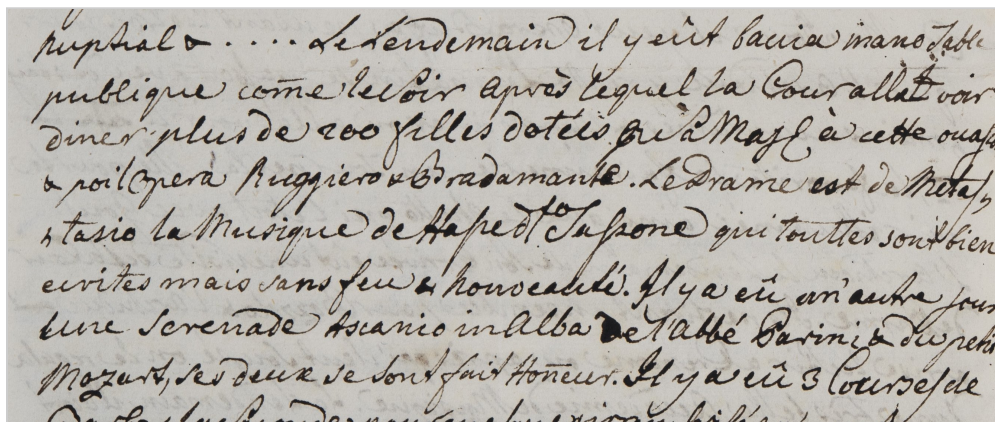 nuptial & .... Le Lendemain il y eût bacia mano Table
publique come le Soir après lequel la Cour alla voir
diner plus de 200 filles dotées à cette
& poi l'Opera Ruggiero & Bradamante. Le Drame est de Metas,
,tasio la Musique de Hasse dto Sassone qui touttes sont bien
ecrites mais sans feu & nouveauté. Il y a eû un'autre jour
une Serenade Ascanio in Alba de l'abbé Parini & du petit
Mozart, ses deux se sont fait Honeur. Il y a eû 3 Courses de